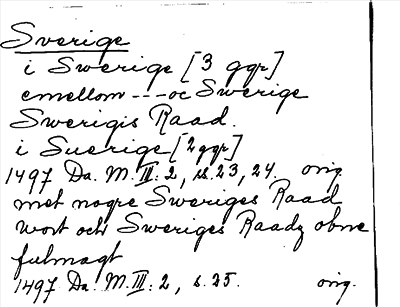 Sverige
i Swerige [3 ggr]
emellom --- oc Swerige
Swerigis Raad.
i Suerige [2 ggr]
1497 Da. M. III: 2, s. 23, 24. orig.
met nogre Sweriges Raad
wort och Sweriges Raadz obne
fulmagt
1497 Da. M. III: 2, s. 25. orig.